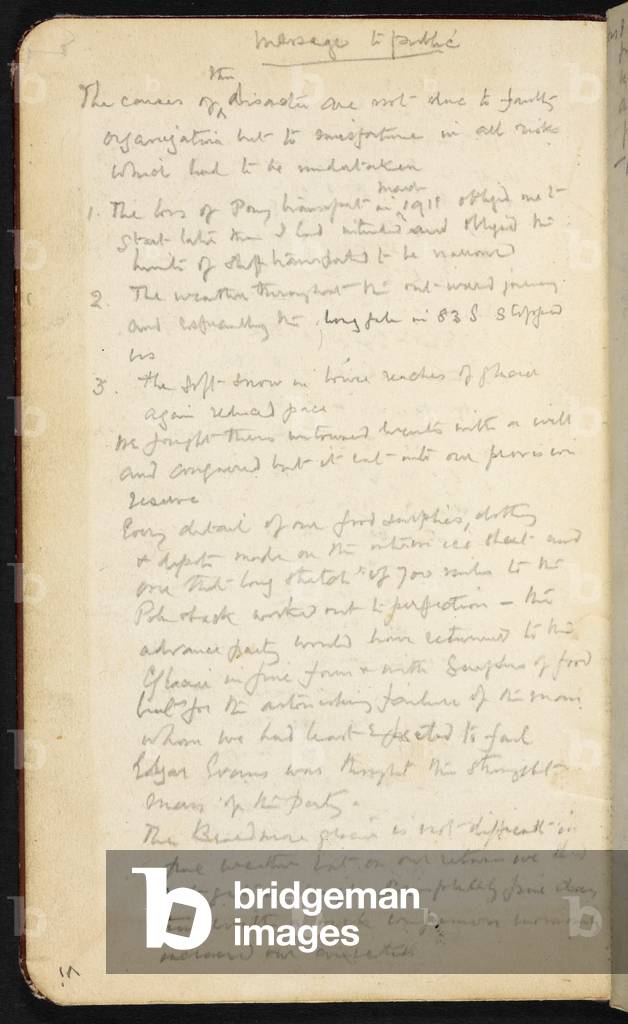 Message to public
the
The causes of ^ disaster are not due to faulty
organisation but to misfortune in all risks
which had to be undertaken
1. The loss of Pony transport in ^ March 1911 obliged me to
start later than I had intended and obliged the
limits of stuff transported to be narrowed
2. The weather throughout the outward journey
and especially the long gale in 83 S stopped
us
3. The soft snow in lower reaches of glacier
again reduced pace
We fought these untoward events with a will
and conquered but it cut into our provision
reserve
Every detail of our food supplies, clothing
& depots made on the interior ice sheet and
over that long stretch of 700 miles to the
Pole & back worked out to perfection – the
advance party would have returned to the
Glacier in fine form & with surplus of food
but for the astonishing failure of the man
whom we had least expected to fail
Edgar Evans was thought the strongest
man of the party.
The Beardmore glacier is not difficult in
fine weather but on our return we did
completely fine day
increased our anxieties
bridgeman
images